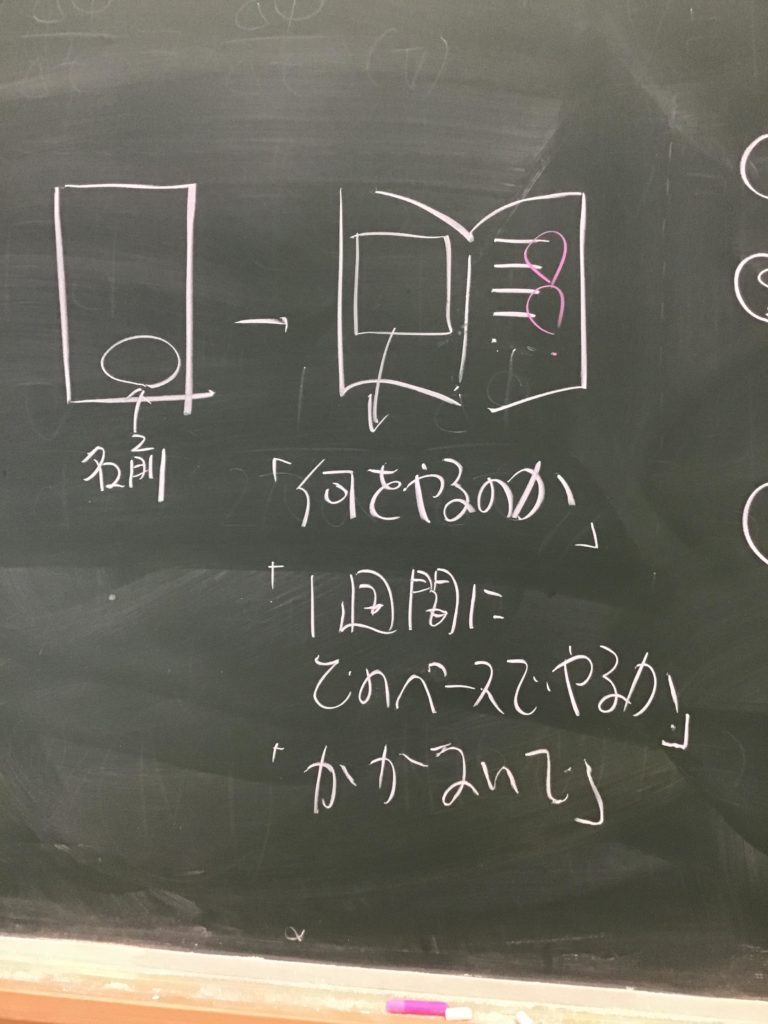 名前
「何をやるのか」
「1週間に
どのペースでやるか」